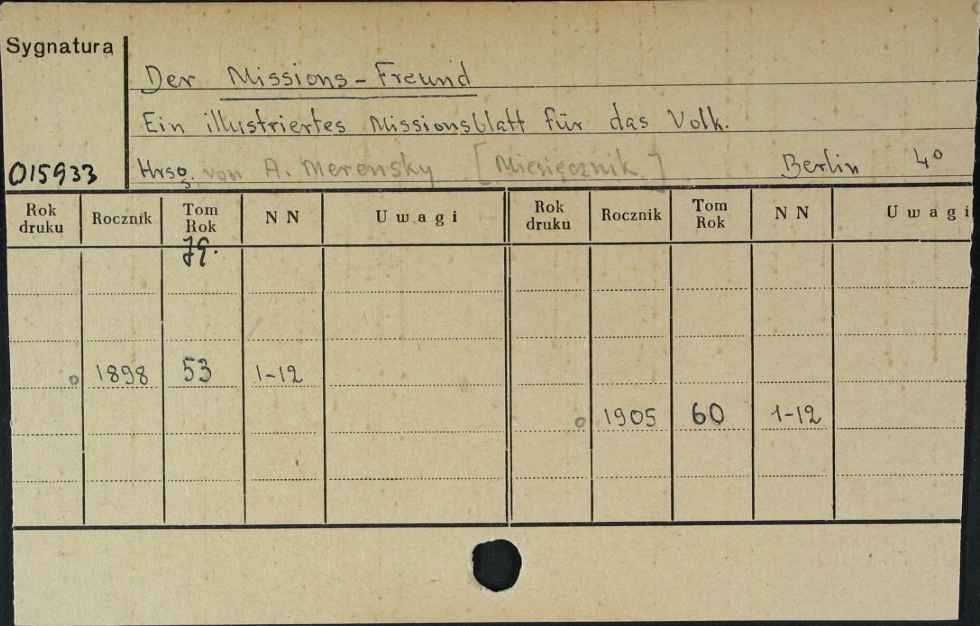 Sygnatura
Der Missions-Freund
Ein illustriertes Missionsblatt für das Volk.
015933 Hrsg. von A. Merensky [Miesięcznik] Berlin 4°
Rok druku Rocznik Tom Rok NN Uwagi Rok druku Rocznik Tom Rok NN Uwagi
Jg.
o 1898 53 1-12
o 1905 60 1-12